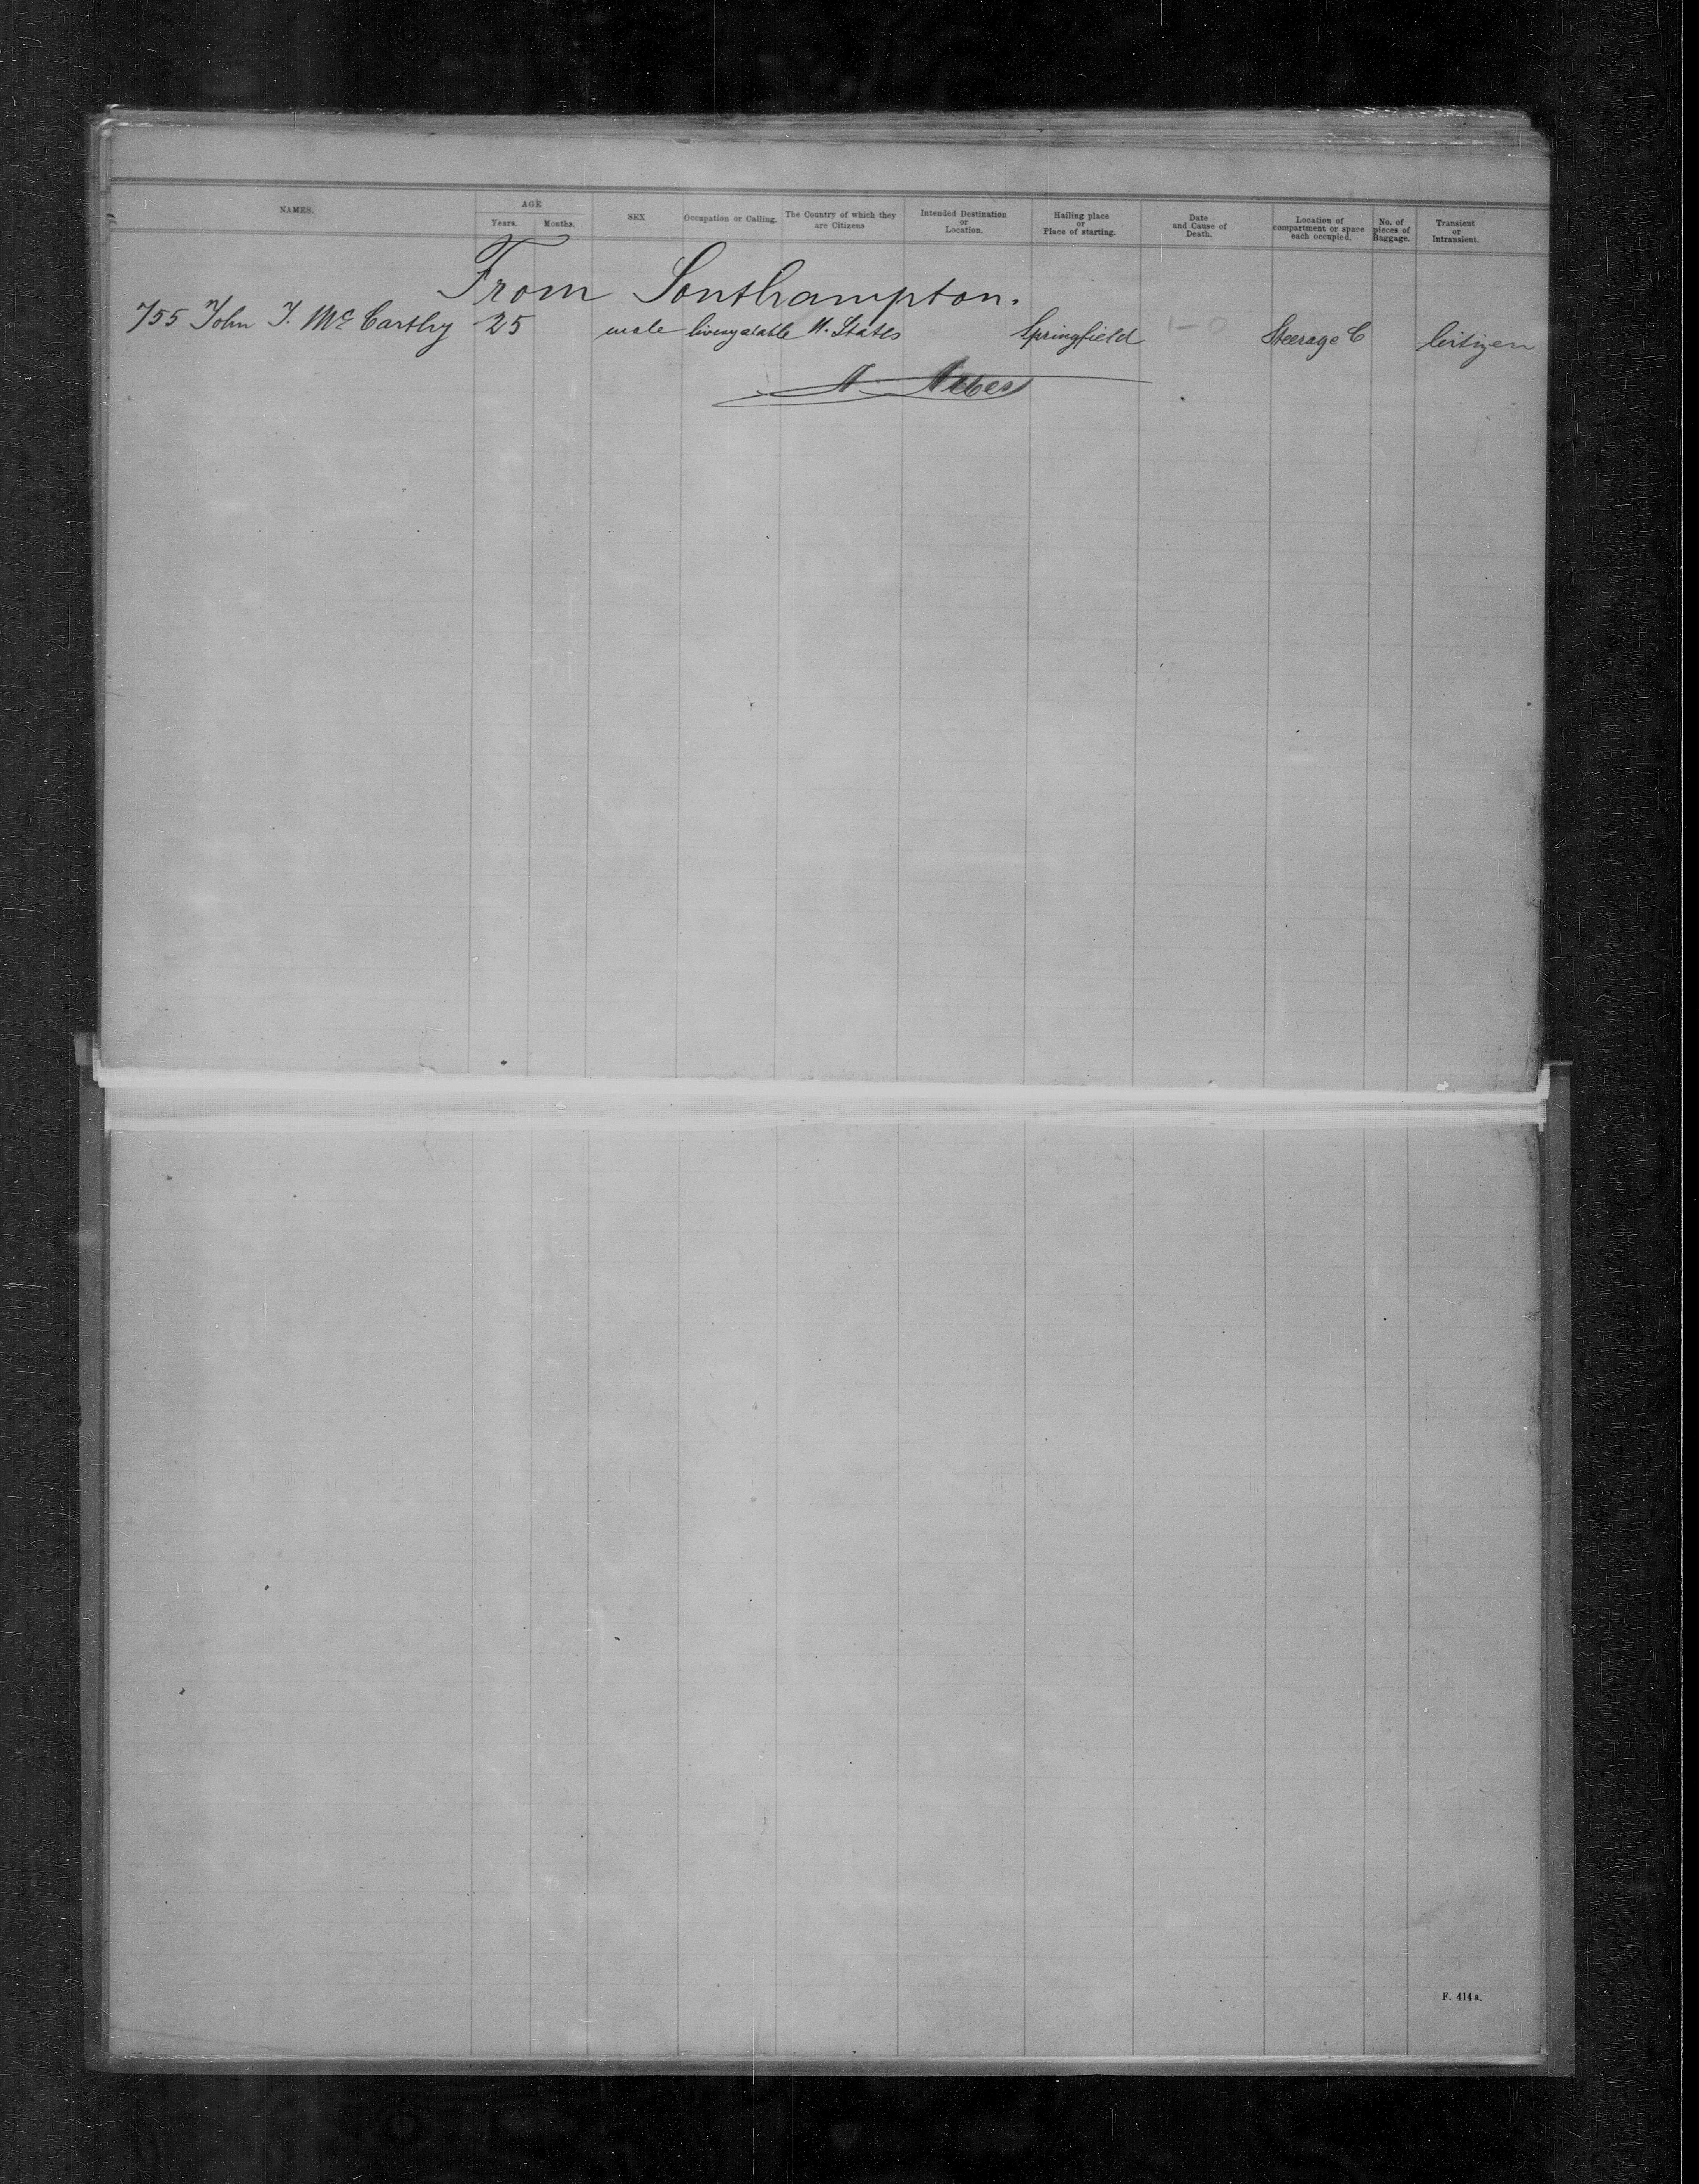 NAMES. AGE SEX Occupation or Calling. The Country of which they are Citizens Intended Destination or Location. Hailing place or Place of starting. Date and Cause of Death. Location of compartment or space each occupied. No. of pieces of Baggage. Transient or Intransient.
Years. Months.
From Southampton.
755 John J. McCarthy 25 male liverystable U. States Springfield 1-0 Steerage C Citizen
A. Albers
F. 414 a.